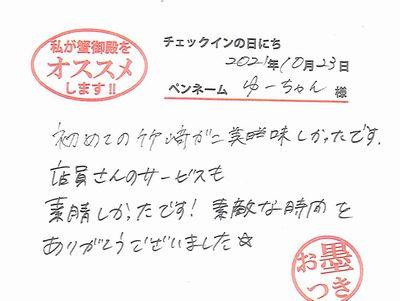 私が蟹御殿を
オススメ
します!!
チェックインの日にち
2021年10月23日
ペンネーム ゆーちゃん 様
初めての竹崎がに美味しかったです。
店員さんのサービスも
素晴しかったです! 素敵な時間を
ありがとうございました☆
お墨
つき